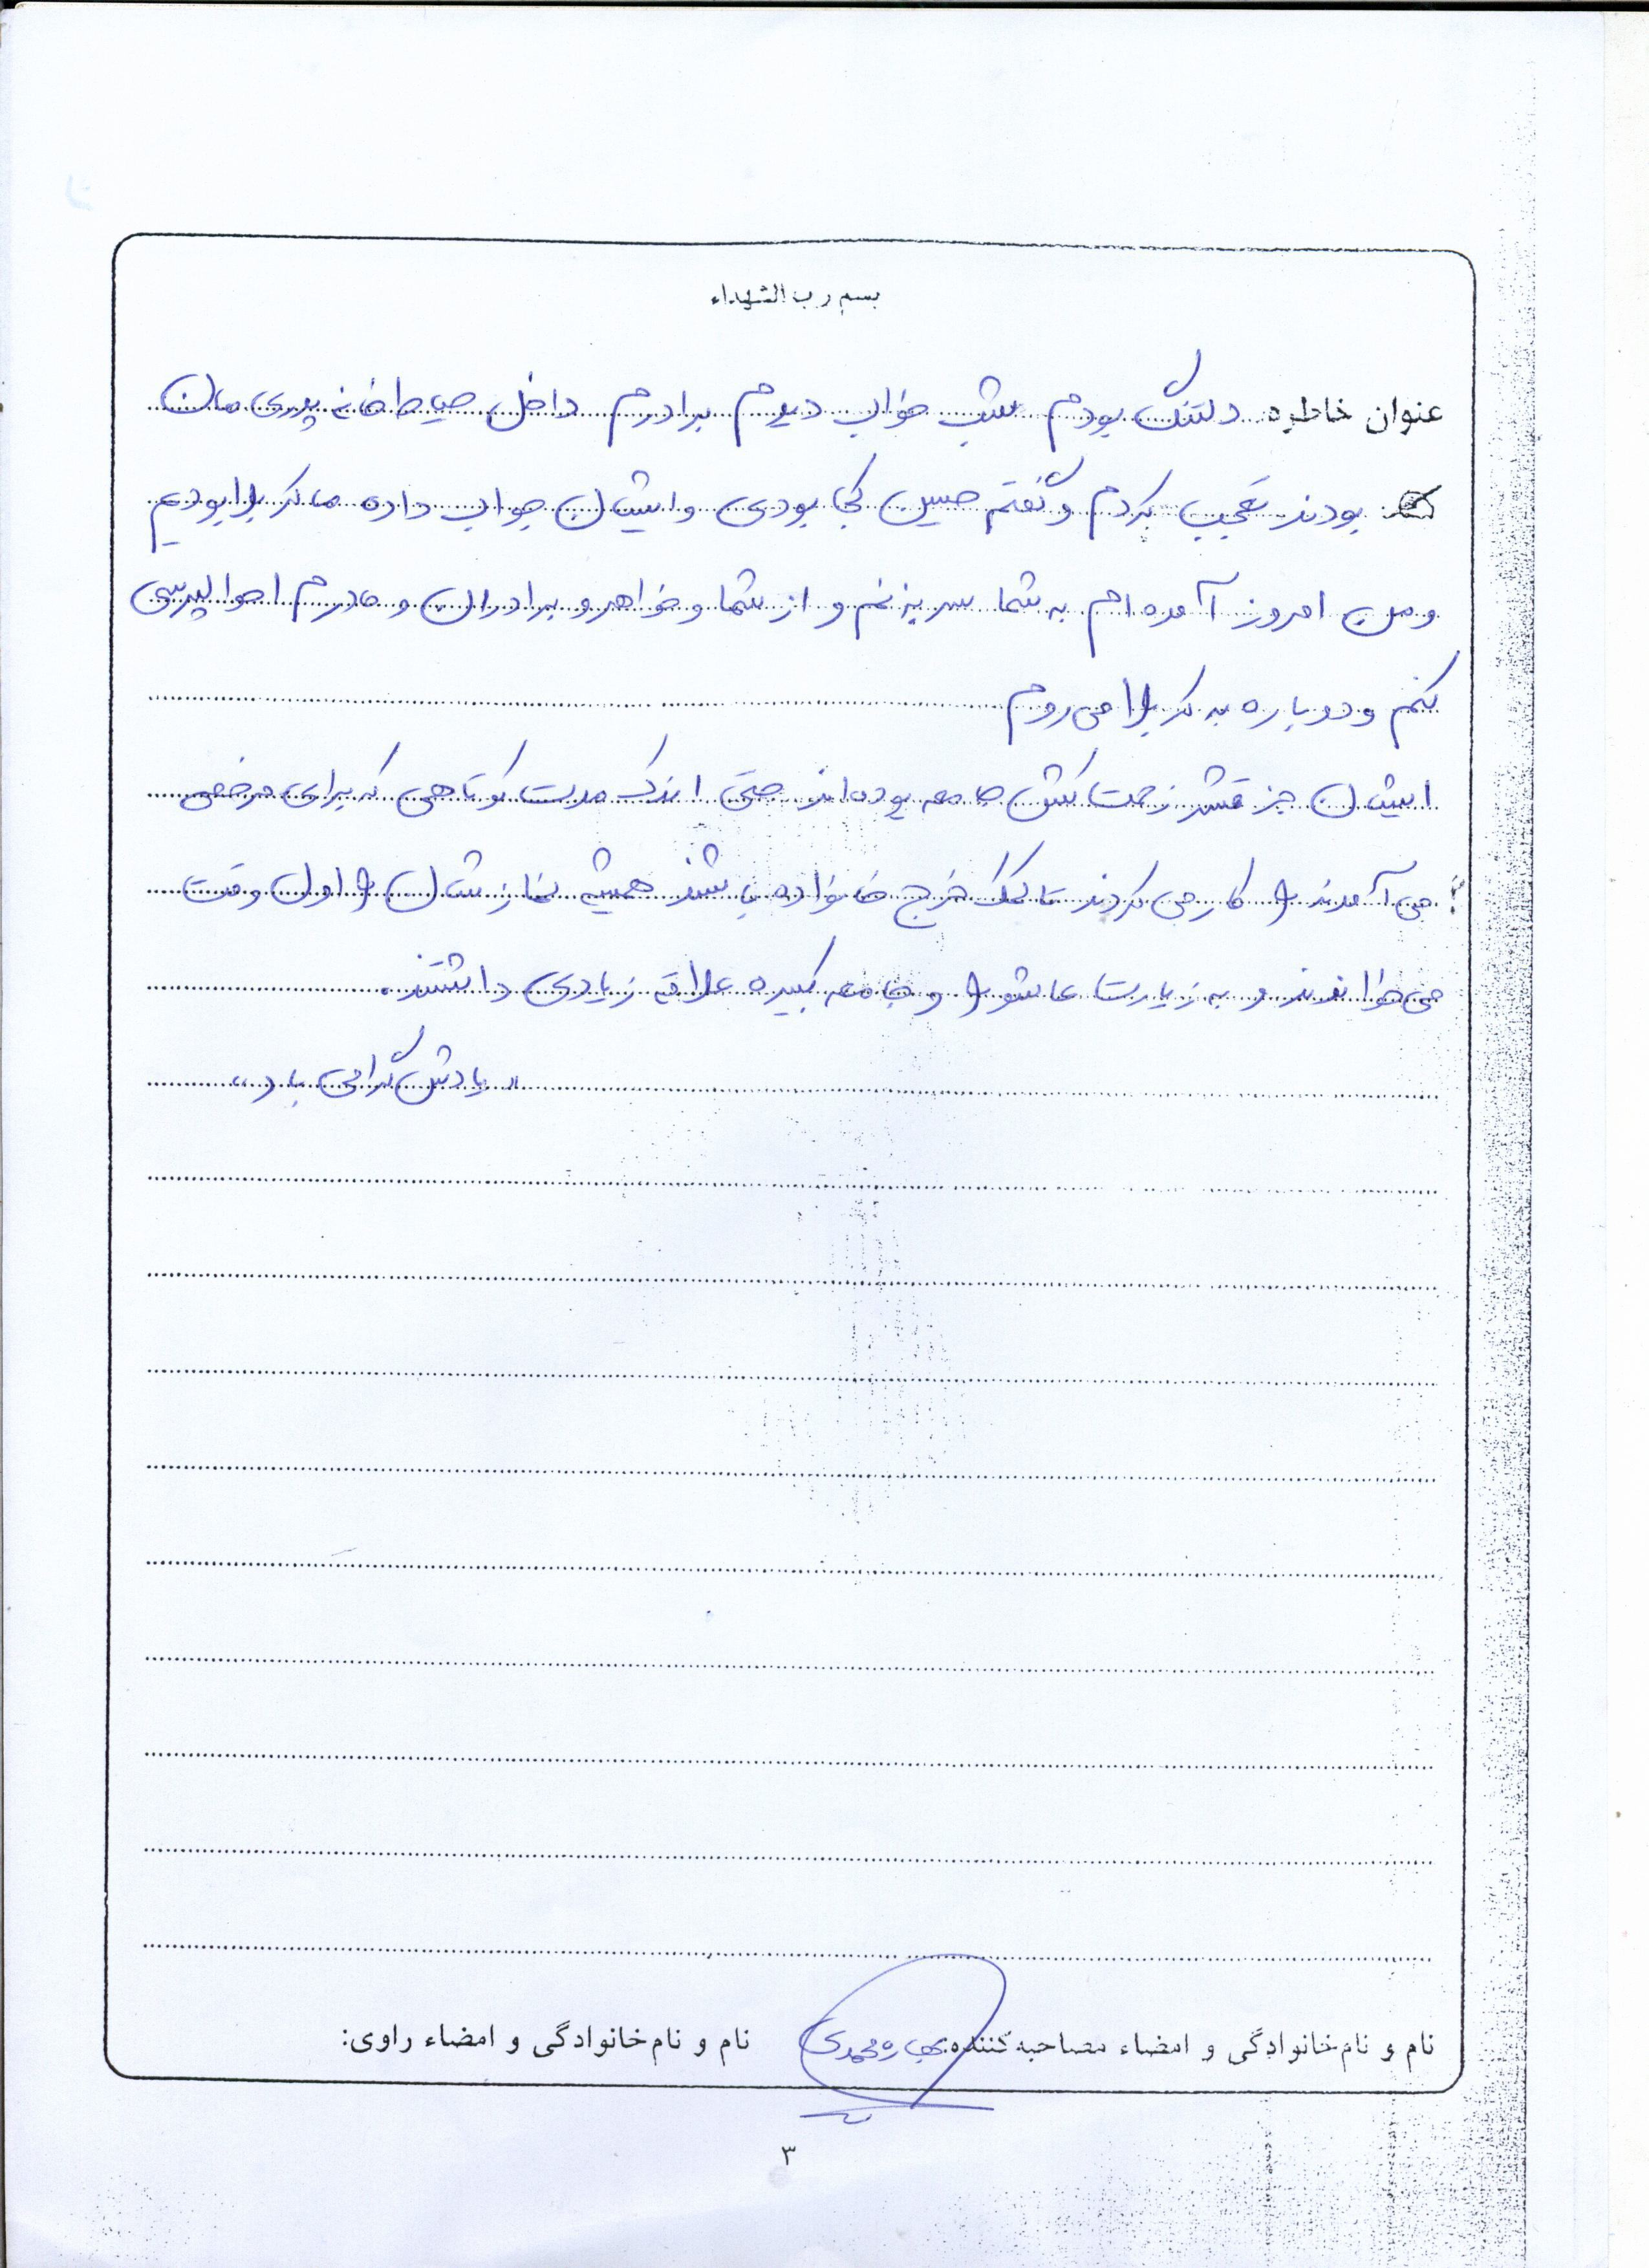 بسم رب الشهداء
عنوان خاطره: دلتنگ بودم شب خواب دیدم برادرم داخل حیاط خانه پدری مان
بودند تعجب کردم و گفتم حسین کجا بودی و ایشان جواب داده ما کربلا بودیم
و من امروز آمده ام به شما سر بزنم و از شما و خواهر و برادران و مادرم احوالپرسی
کنم و دوباره به کربلا می روم
ایشان جز قشر زحمت کش جامعه بوده اند حتی اندک مدت کوتاهی که برای مرخصی
می آمدند کار می کردند تا کمک خرج خانواده باشند همیشه نمازشان را اول وقت
می خواندند و به زیارت عاشورا و جامعه کبیره علاقه زیادی داشتند.
"یادش گرامی باد"
نام و نام‌خانوادگی و امضاء مصاحبه کننده: بهاره محمدی نام و نام‌خانوادگی و امضاء راوی:
۳